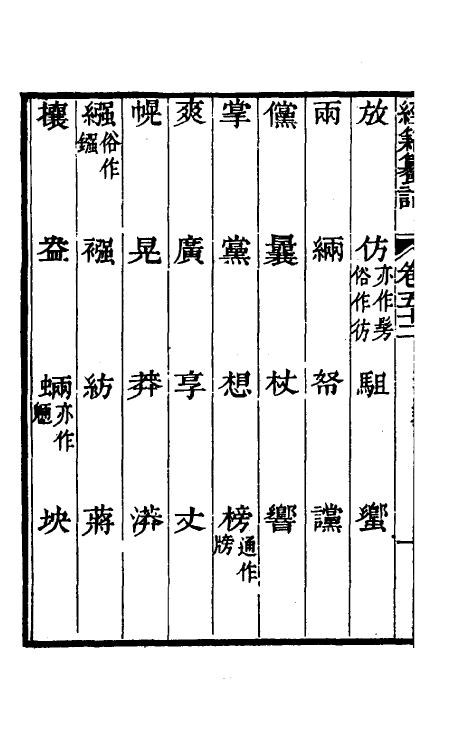 經籍籑詁 卷五十二 一
放 仿亦作髣俗作彷 駔 蠁
兩 緉 帑 讜
儻 曩 杖 響
掌 黨 想 榜通作牓
爽 廣 享 丈
幌 晃 莽 漭
繈俗作鏹 襁 紡 蔣
攘 盎 蝄亦作魍 坱